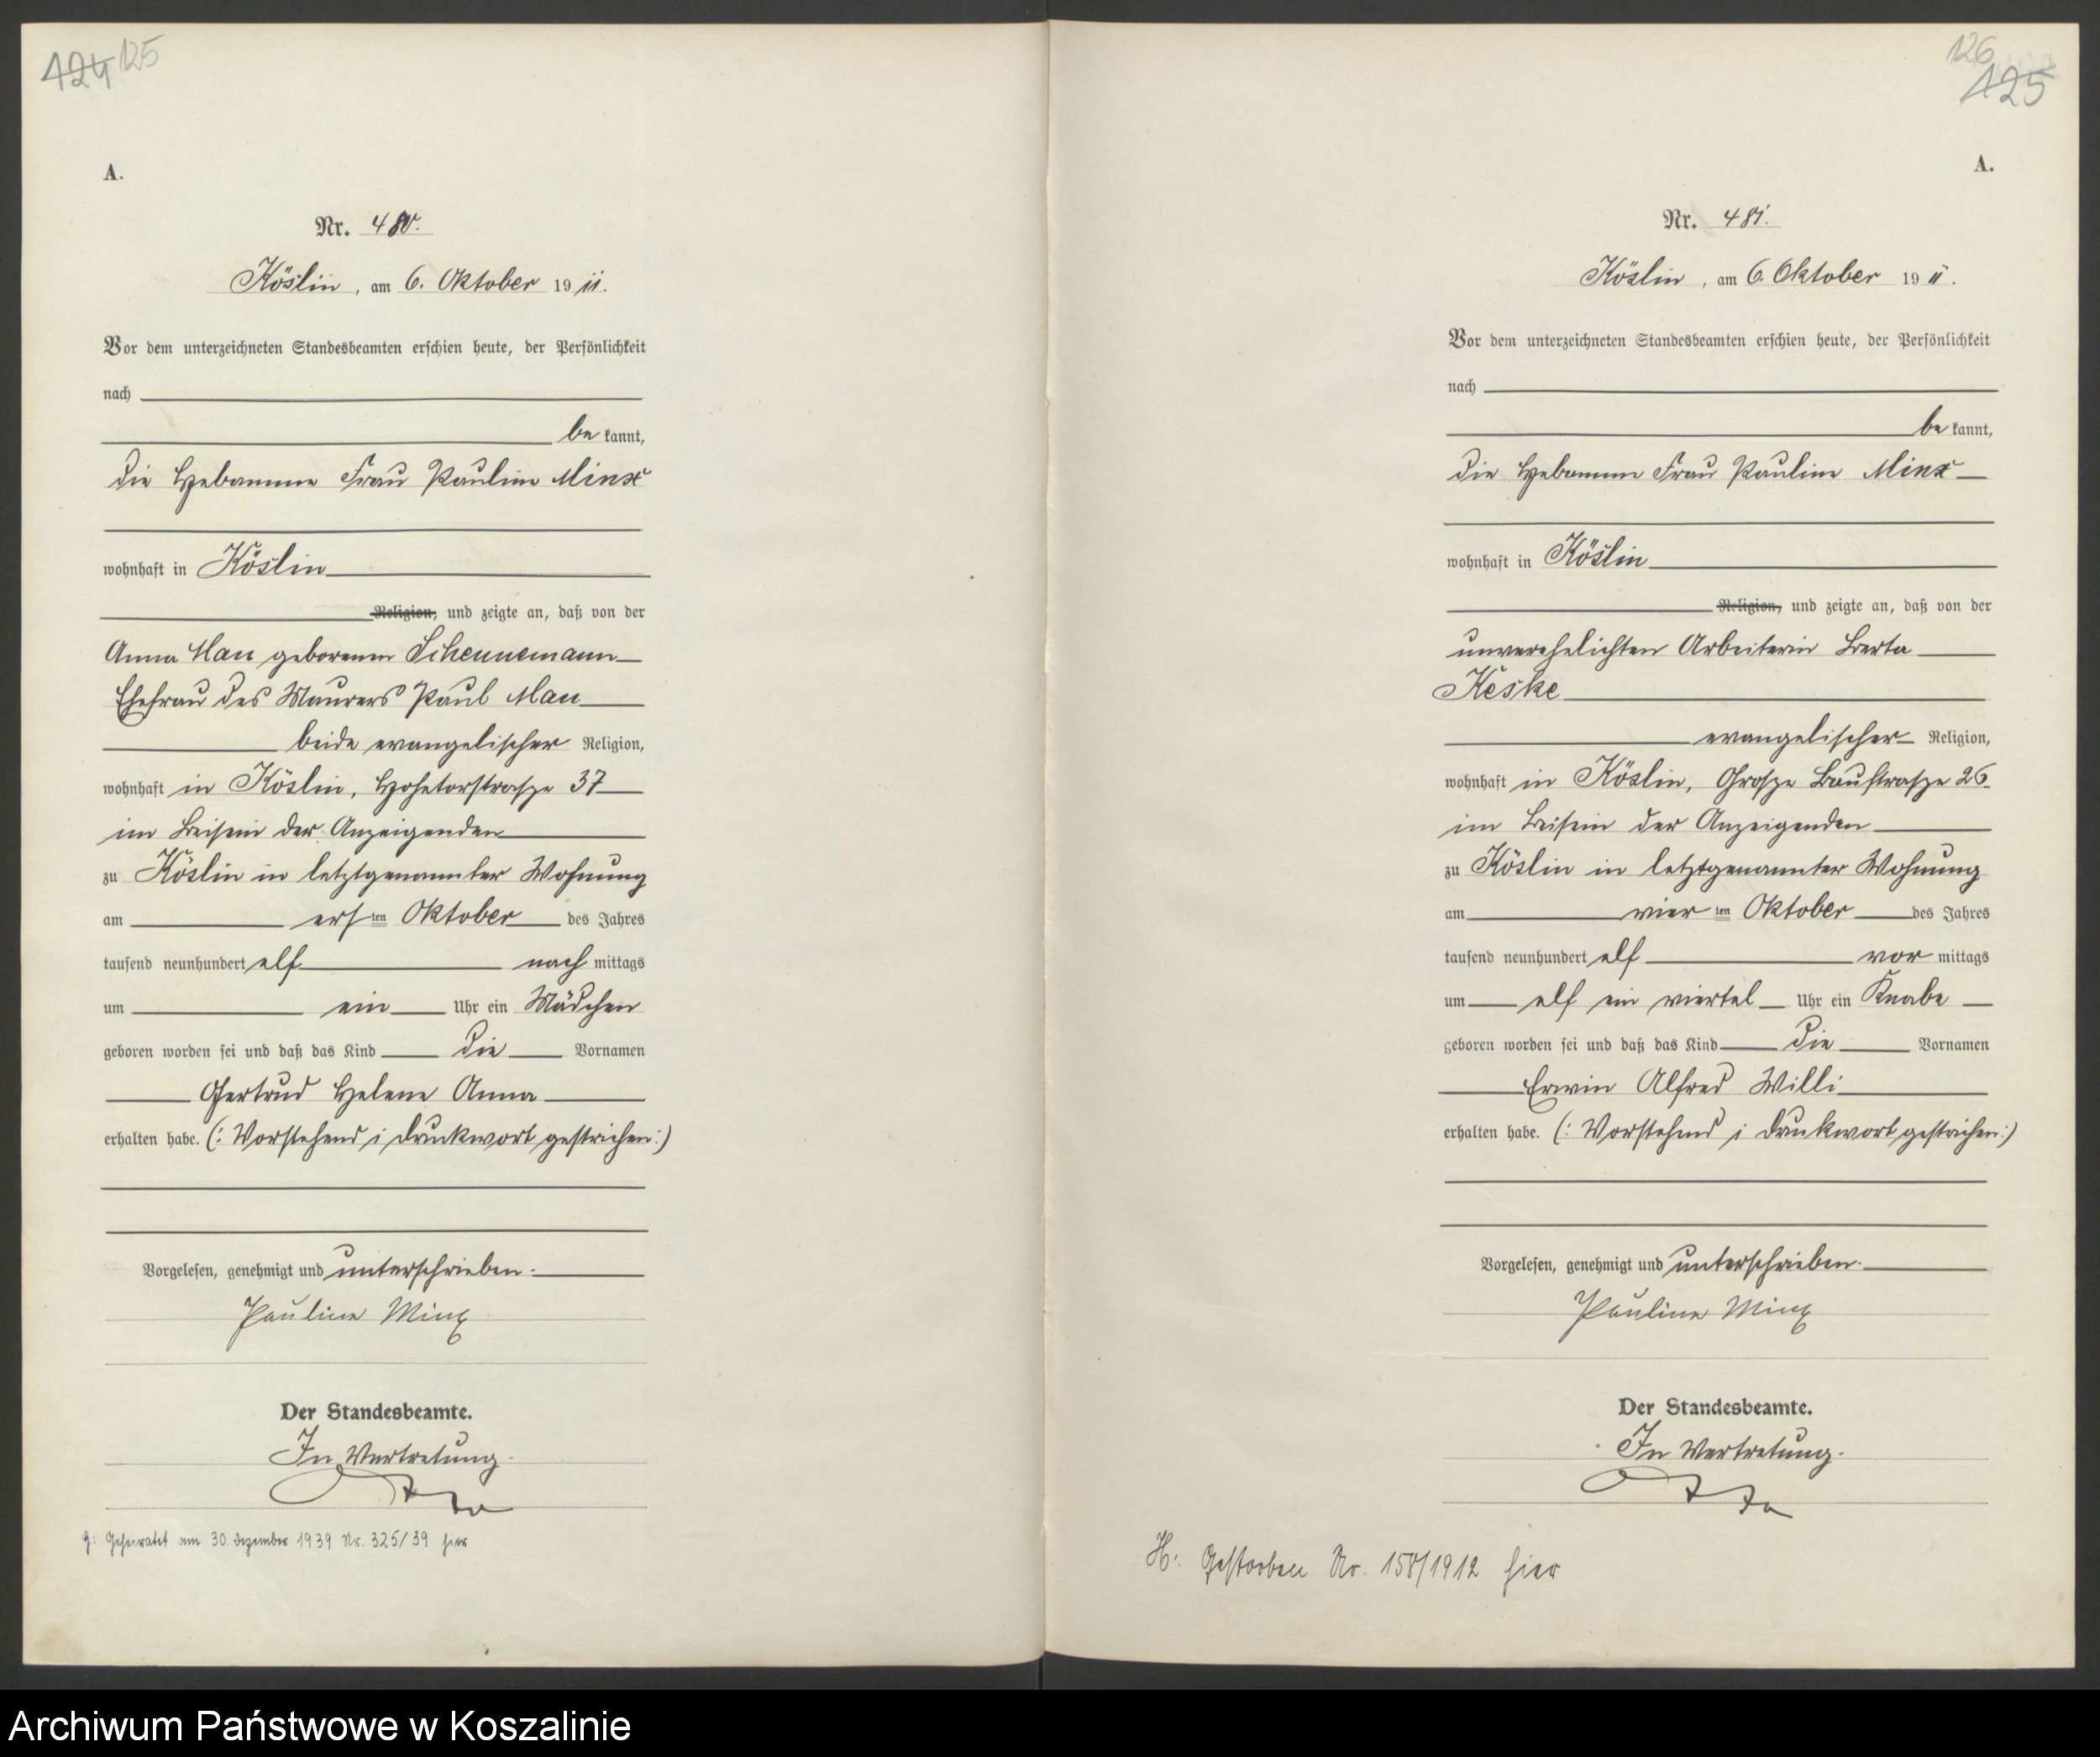 124 125
A.
Nr. 480.
Köslin, am 6. Oktober 1911.
Vor dem unterzeichneten Standesbeamten erschien heute, der Persönlichkeit
nach
be kannt,
die Hebamme Frau Pauline Minx
wohnhaft in Köslin
Religion, und zeigte an, daß von der
Anna Mau geborenen Scheunemann
Ehefrau des Maurers Paul Mau
beide evangelischer Religion,
wohnhaft in Köslin, Hohetorstrasze 37
im Beisein der Anzeigenden
zu Köslin in letztgenannter Wohnung
am ersten Oktober des Jahres
tausend neunhundert elf nach mittags
um ein Uhr ein Mädchen
geboren worden sei und daß das Kind die Vornamen
Gertrud Helene Anna
erhalten habe. (: Vorstehend 1 Druckwort gestrichen :)
Vorgelesen, genehmigt und unterschrieben.
Pauline Minx
Der Standesbeamte.
In Vertretung.
G: Geheiratet am 30. Dezember 1939 Nr. 325/39 hier
126
125
A.
Nr. 481.
Köslin, am 6. Oktober 1911.
Vor dem unterzeichneten Standesbeamten erschien heute, der Persönlichkeit
nach
be kannt,
die Hebamme Frau Pauline Minx
wohnhaft in Köslin
Religion, und zeigte an, daß von der
unverehelichten Arbeiterin Berta
Keske
evangelischer Religion,
wohnhaft in Köslin, Grosze Baustrasze 26
im Beisein der Anzeigenden
zu Köslin in letztgenannter Wohnung
am vierten Oktober des Jahres
tausend neunhundert elf vor mittags
um elf ein viertel Uhr ein Knabe
geboren worden sei und daß das Kind die Vornamen
Erwin Alfred Willi
erhalten habe. (: Vorstehend 1 Druckwort gestrichen :)
Vorgelesen, genehmigt und unterschrieben.
Pauline Minx
Der Standesbeamte.
In Vertretung.
H: Gestorben Nr. 158/1912 hier
Archiwum Państwowe w Koszalinie